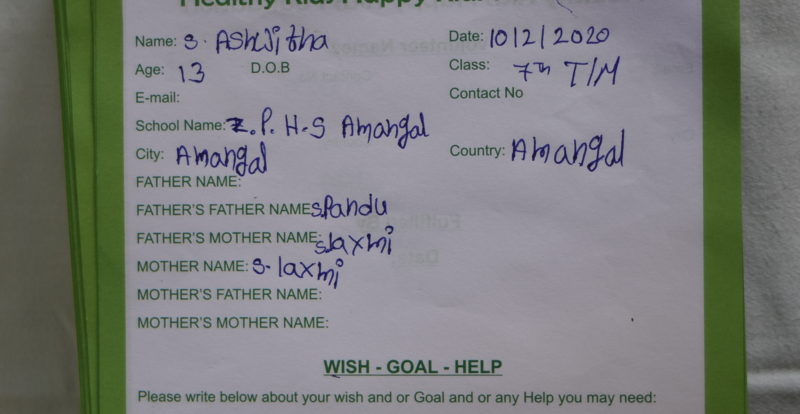 Name: S. AShWitha Date: 10/2/2020
Age: 13 D.O.B Class: 7th T/M
E-mail: Contact No
School Name: Z.P.H.S Amangal
City: Amangal Country: Amangal
FATHER NAME:
FATHER'S FATHER NAME: S.Pandu
FATHER'S MOTHER NAME: S.laxmi
MOTHER NAME: S. laxmi
MOTHER'S FATHER NAME:
MOTHER'S MOTHER NAME:
WISH - GOAL - HELP
Please write below about your wish and or Goal and or any Help you may need: